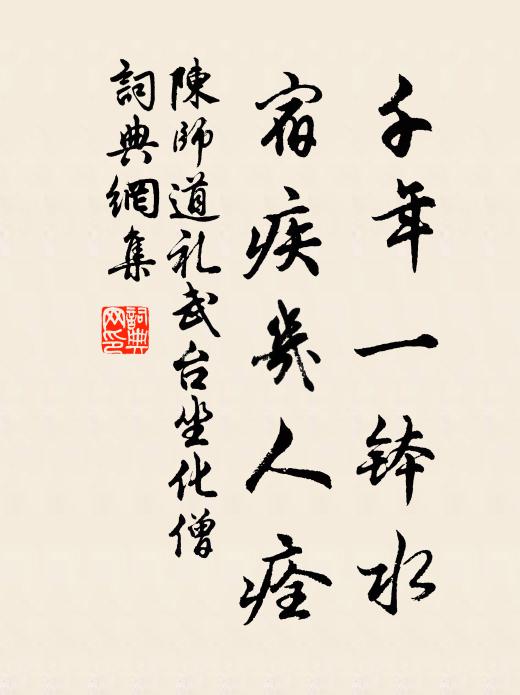 千年一鉢水
宿疾幾人痊
陳師道礼武台坐化僧
詞典網集
詞典网印